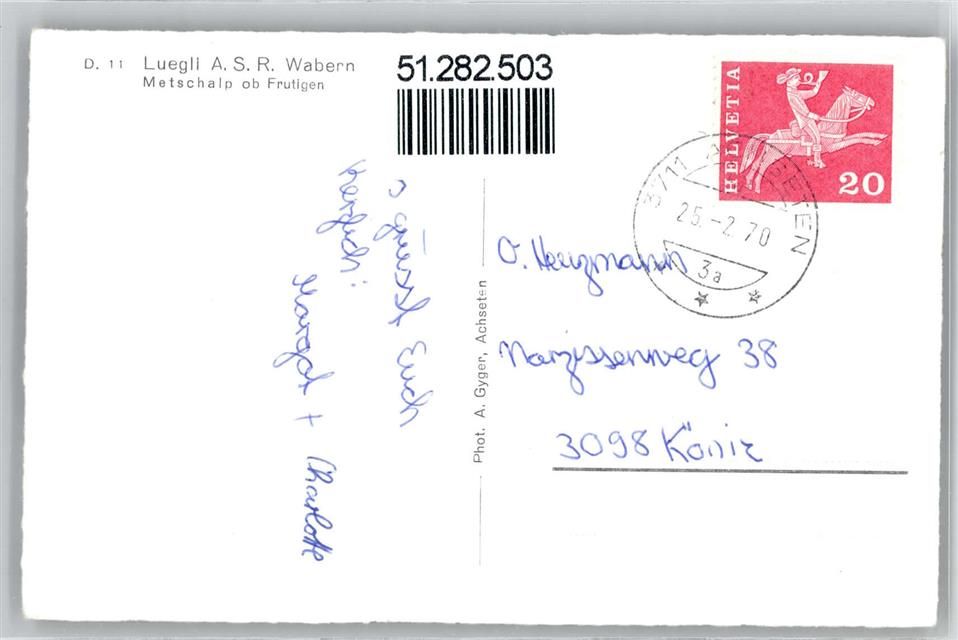 D. 11 Luegli A. S. R. Wabern
Metschalp ob Frutigen
51.282.503
HELVETIA
20
3711
25.-2.70
3a
Euch
Herzlich!
Margot + Charlotte
Phot. A. Gyger, Achseten
O. Heuzmann
Narzissenweg 38
3098 Köniz